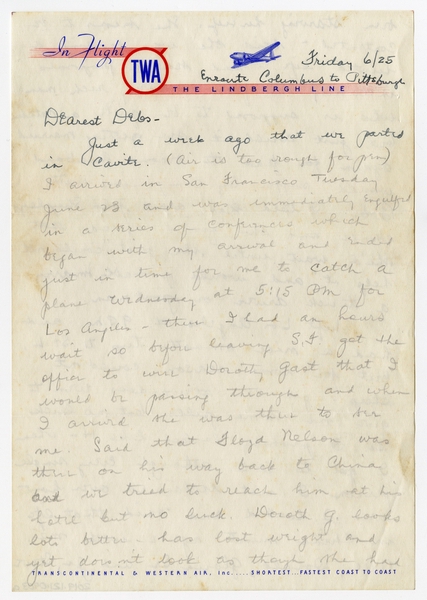 In Flight
TWA
Friday 6/25
Enroute Columbus to Pittsburgh
THE LINDBERGH LINE
Dearest Debs-
Just a week ago that we parted
in Cavite. (Air is too rough for pen)
I arrived in San Francisco Tuesday
June 23 and was immediately engulfed
in a series of conferences which
began with my arrival and ended
just in time for me to catch a
plane Wednesday at 5:15 PM for
Los Angeles - there I had an hours
wait so before leaving S.F. got the
office to wire Dorothy Gast that I
would be passing through and when
I arrived she was there to see
me. Said that Floyd Nelson was
there on his way back to China
and we tried to reach him at his
hotel but no luck. Doroth G. looks
lots better - has lost weight and
yet doesn't look as though she had
TRANSCONTINENTAL & WESTERN AIR, Inc. .... SHORTEST.. FASTEST COAST TO COAST